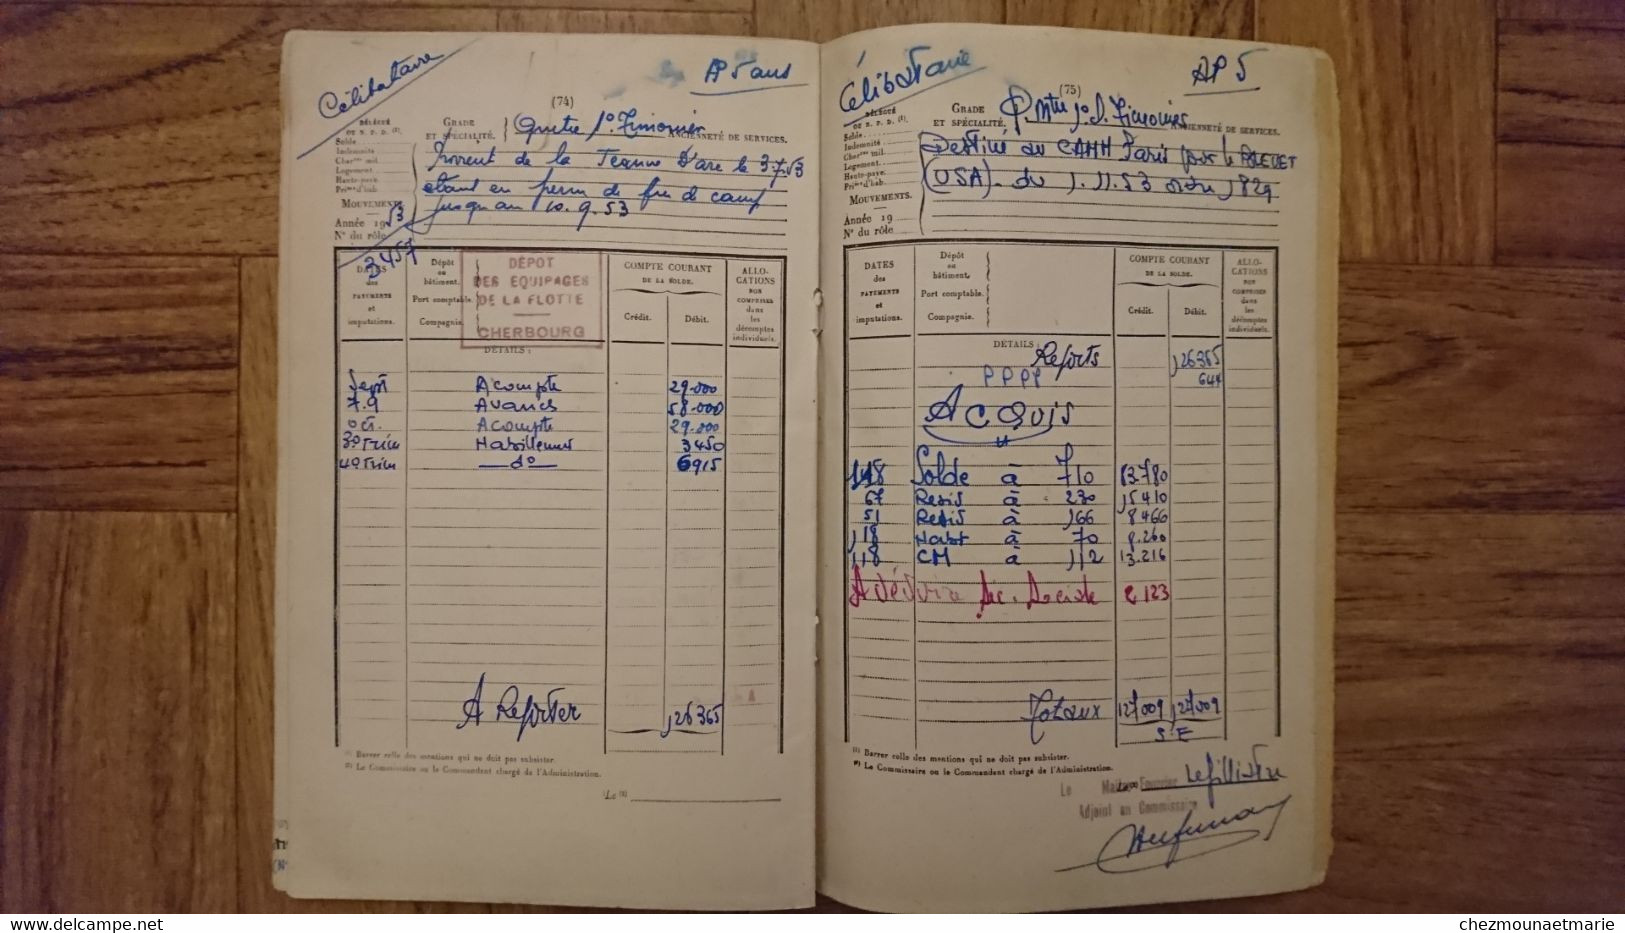 Célibataire
AP 5 ans
(74)
DÉLÉGUÉ
OU N. P. D. (1).
Solde
Indemnité
Cher mil.
Logement
Haute-paye
Prime d'hab
MOUVEMENTS.
Année 19 53
N° du rôle
3457
GRADE
ET SPÉCIALITÉ.
Timonier
ANCIENNETÉ DE SERVICES.
de la Jeanne d'Arc le 3.7.53
étant en perm de fin de camp
jusqu'au 10.9.53
DATES
des
PAYEMENTS
et
imputations.
Dépôt
ou
bâtiment.
Port comptable.
Compagnie.
DÉPOT
DES EQUIPAGES
DE LA FLOTTE
CHERBOURG
COMPTE COURANT
DE LA SOLDE.
Crédit.
Débit.
ALLO-
CATIONS
NON
COMPRISES
dans
les
décomptes
individuels.
DÉTAILS :
Sept Acompte 29.000
7.9 Avances 58.000
oct. Acompte 29.000
3° Trim 3450
4° Trim d° 6915
A Reporter 126365
(1) Barrer celle des mentions qui ne doit pas subsister.
(2) Le Commissaire ou le Commandant chargé de l'Administration.
Le (2)
Célibataire
AP 5
(75)
DÉLÉGUÉ
OU N. P. D. (1).
Solde
Indemnité
Cher mil.
Logement
Haute-paye
Prime d'hab
MOUVEMENTS.
Année 19
N° du rôle
GRADE
ET SPÉCIALITÉ.
Timonier
ANCIENNETÉ DE SERVICES.
Destiné au CAMM Paris pour le
(USA). du 1.11.53 ordre 1829
DATES
des
PAYEMENTS
et
imputations.
Dépôt
ou
bâtiment.
Port comptable.
Compagnie.
COMPTE COURANT
DE LA SOLDE.
Crédit.
Débit.
ALLO-
CATIONS
NON
COMPRISES
dans
les
décomptes
individuels.
DÉTAILS :
Reports 126365
P P P P 644
ACQUIS
118 Solde à 710 83780
67 à 230 15410
51 à 166 8466
118 à 70 8.260
118 CM à 112 13.216
A déduire Séc. Sociale 2123
Totaux 127009 127009
S.E
(1) Barrer celle des mentions qui ne doit pas subsister.
(2) Le Commissaire ou le Commandant chargé de l'Administration.
Le Maître Fourrier
Adjoint au Commissaire
delcampe.net
chezmounaetmarie